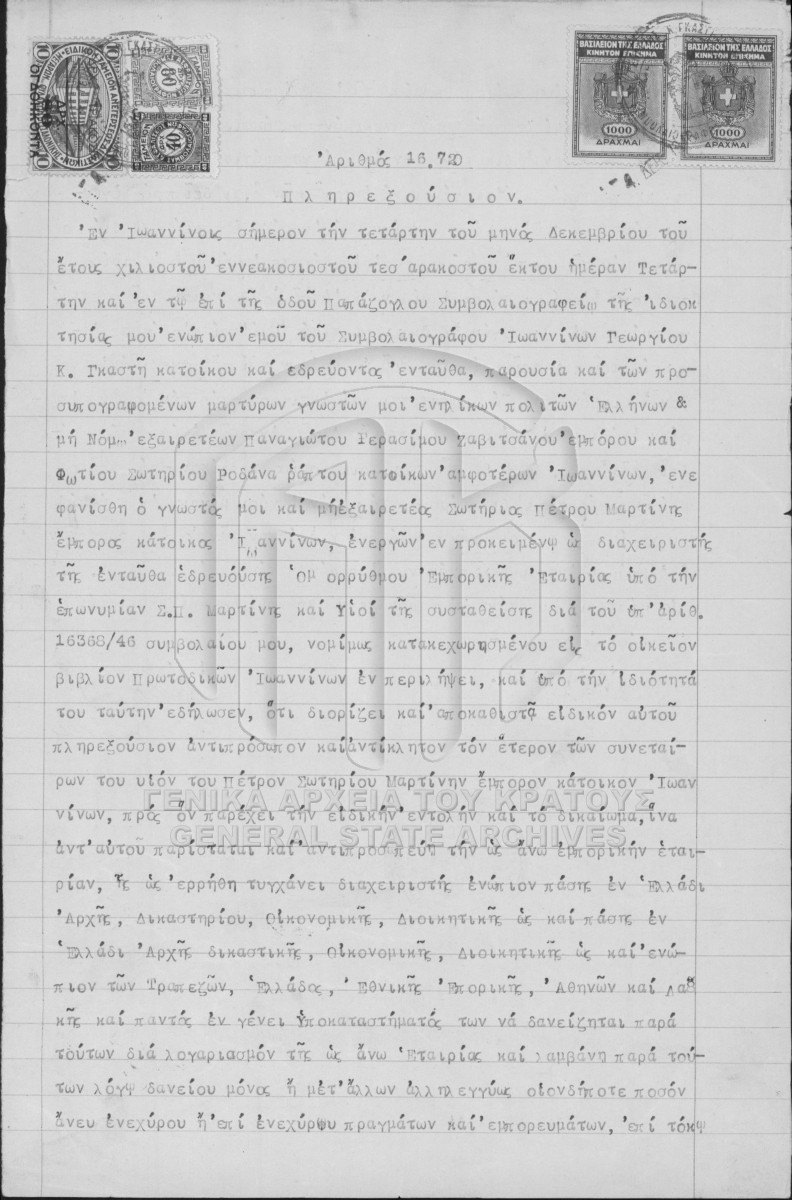 ΒΑΣΙΛΕΙΟΝ ΤΗΣ ΕΛΛΑΔΟΣ
ΚΙΝΗΤΟΝ ΕΠΙΣΗΜΑ
1000
ΔΡΑΧΜΑΙ
ΒΑΣΙΛΕΙΟΝ ΤΗΣ ΕΛΛΑΔΟΣ
ΚΙΝΗΤΟΝ ΕΠΙΣΗΜΑ
1000
ΔΡΑΧΜΑΙ
Ἀριθμός 16.720
Πληρεξούσιον.
Ἐν Ἰωαννίνοις σήμερον τήν τετάρτην τοῦ μηνός Δεκεμβρίου τοῦ
ἔτους χιλιοστοῦ ἐννεακοσιοστοῦ τεσ αρακοστοῦ ἕκτου ἡμέραν Τετάρ-
την καί ἐν τῷ ἐπί τῆς ὁδοῦ Παπάζογλου Συμβολαιογραφείῳ τῆς ἰδιοκ
τησίας μου ἐνώπιον ἐμοῦ τοῦ Συμβολαιογράφου Ἰωαννίνων Γεωργίου
Κ. Γκαστῆ κατοίκου καί εδρεύοντος ἐνταῦθα, παρουσία καί τῶν προ-
συπογραφομένων μαρτύρων γνωστῶν μοι ἐνηλίκων πολιτῶν Ἑλλήνων &
μή Νόμῳ ἐξαιρετέων Παναγιώτου Γερασίμου Ζαβιτσάνου ἐμπόρου καί
Φωτίου Σωτηρίου Ροδάνα ῥάπτου κατοίκων ἀμφοτέρων Ἰωαννίνων, ἐνε
φανίσθη ὁ γνωστός μοι καί μή ἐξαιρετέος Σωτήριος Πέτρου Μαρτίνης
ἔμπορος κάτοικος Ἰωαννίνων, ἐνεργῶν ἐν προκειμένῳ ὡς διαχειριστής
τῆς ἐνταῦθα ἑδρευούσης Ὁμ ορρύθμου Ἐμπορικῆς Ἑταιρίας ὑπό τήν
ἐπωνυμίαν Σ.Π. Μαρτίνης καί Υἱοί τῆς συσταθείσης διά τοῦ ὑπ' ἀρίθ.
16368/46 συμβολαίου μου, νομίμως κατακεχωρησμένου εἰς τό οἰκεῖον
βιβλίον Πρωτοδικῶν Ἰωαννίνων ἐν περιλήψει, καί ὑπό τήν ἰδιότητά
του ταύτην ἐδήλωσεν, ὅτι διορίζει καί ἀποκαθιστᾷ εἰδικόν αὐτοῦ
πληρεξούσιον ἀντιπρόσωπον καί ἀντίκλητον τόν ἕτερον τῶν συνεταί-
ρων του υἱόν του Πέτρον Σωτηρίου Μαρτίνην ἔμπορον κάτοικον Ἰωαν
νίνων, πρός ὅν παρέχει τήν εἰδικήν ἐντολήν καί τό δικαίωμα, ἵνα
ἀντ' αὐτοῦ παρίσταται καί ἀντιπροσωπεύῃ τήν ὡς ἄνω ἐμπορικήν ἑται-
ρίαν, ἧς ὡς ἐρρήθη τυγχάνει διαχειριστής ἐνώπιον πάσης ἐν Ἑλλάδι
Ἀρχῆς, Δικαστηρίου, Οἰκονομικῆς, Διοικητικῆς ὡς καί πάσης ἐν
Ἑλλάδι Ἀρχῆς δικαστικῆς, Οἰκονομικῆς, Διοικητικῆς ὡς καί ἐνώ-
πιον τῶν Τραπεζῶν, Ἑλλάδος, Ἐθνικῆς Ἐπορικῆς, Ἀθηνῶν καί Λαϊ
κῆς καί παντός ἐν γένει Ὑποκαταστήματός των νά δανείζηται παρά
τούτων διά λογαριασμόν τῆς ὡς ἄνω Ἑταιρίας καί λαμβάνη παρά τού-
των λόγῳ δανείου μόνος ἤ μετ' ἄλλων ἀλληλεγγύως οἱονδήποτε ποσόν
ἄνευ ἐνεχύρου ἤ ἐπί ἐνεχύρῳ πραγμάτων καί ἐμπορευμάτων, ἐπί τόκῳ
ΓΕΝΙΚΑ ΑΡΧΕΙΑ ΤΟΥ ΚΡΑΤΟΥΣ
GENERAL STATE ARCHIVES